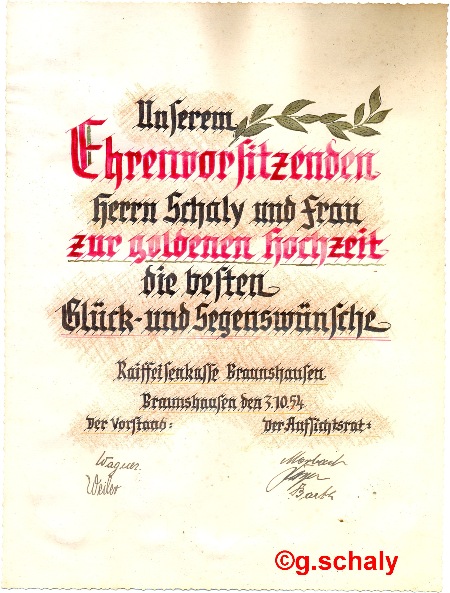 Unserem
Ehrenvorsitzenden
Herrn Schaly und Frau
zur goldenen Hochzeit
die besten
Glück- und Segenswünsche
Raiffeisenkasse Braunshausen
Braunshausen den 3.10.54
Der Vorstand: Der Aufsichtsrat:
Wagner Morbach
Weiler
Barth
©g.schaly